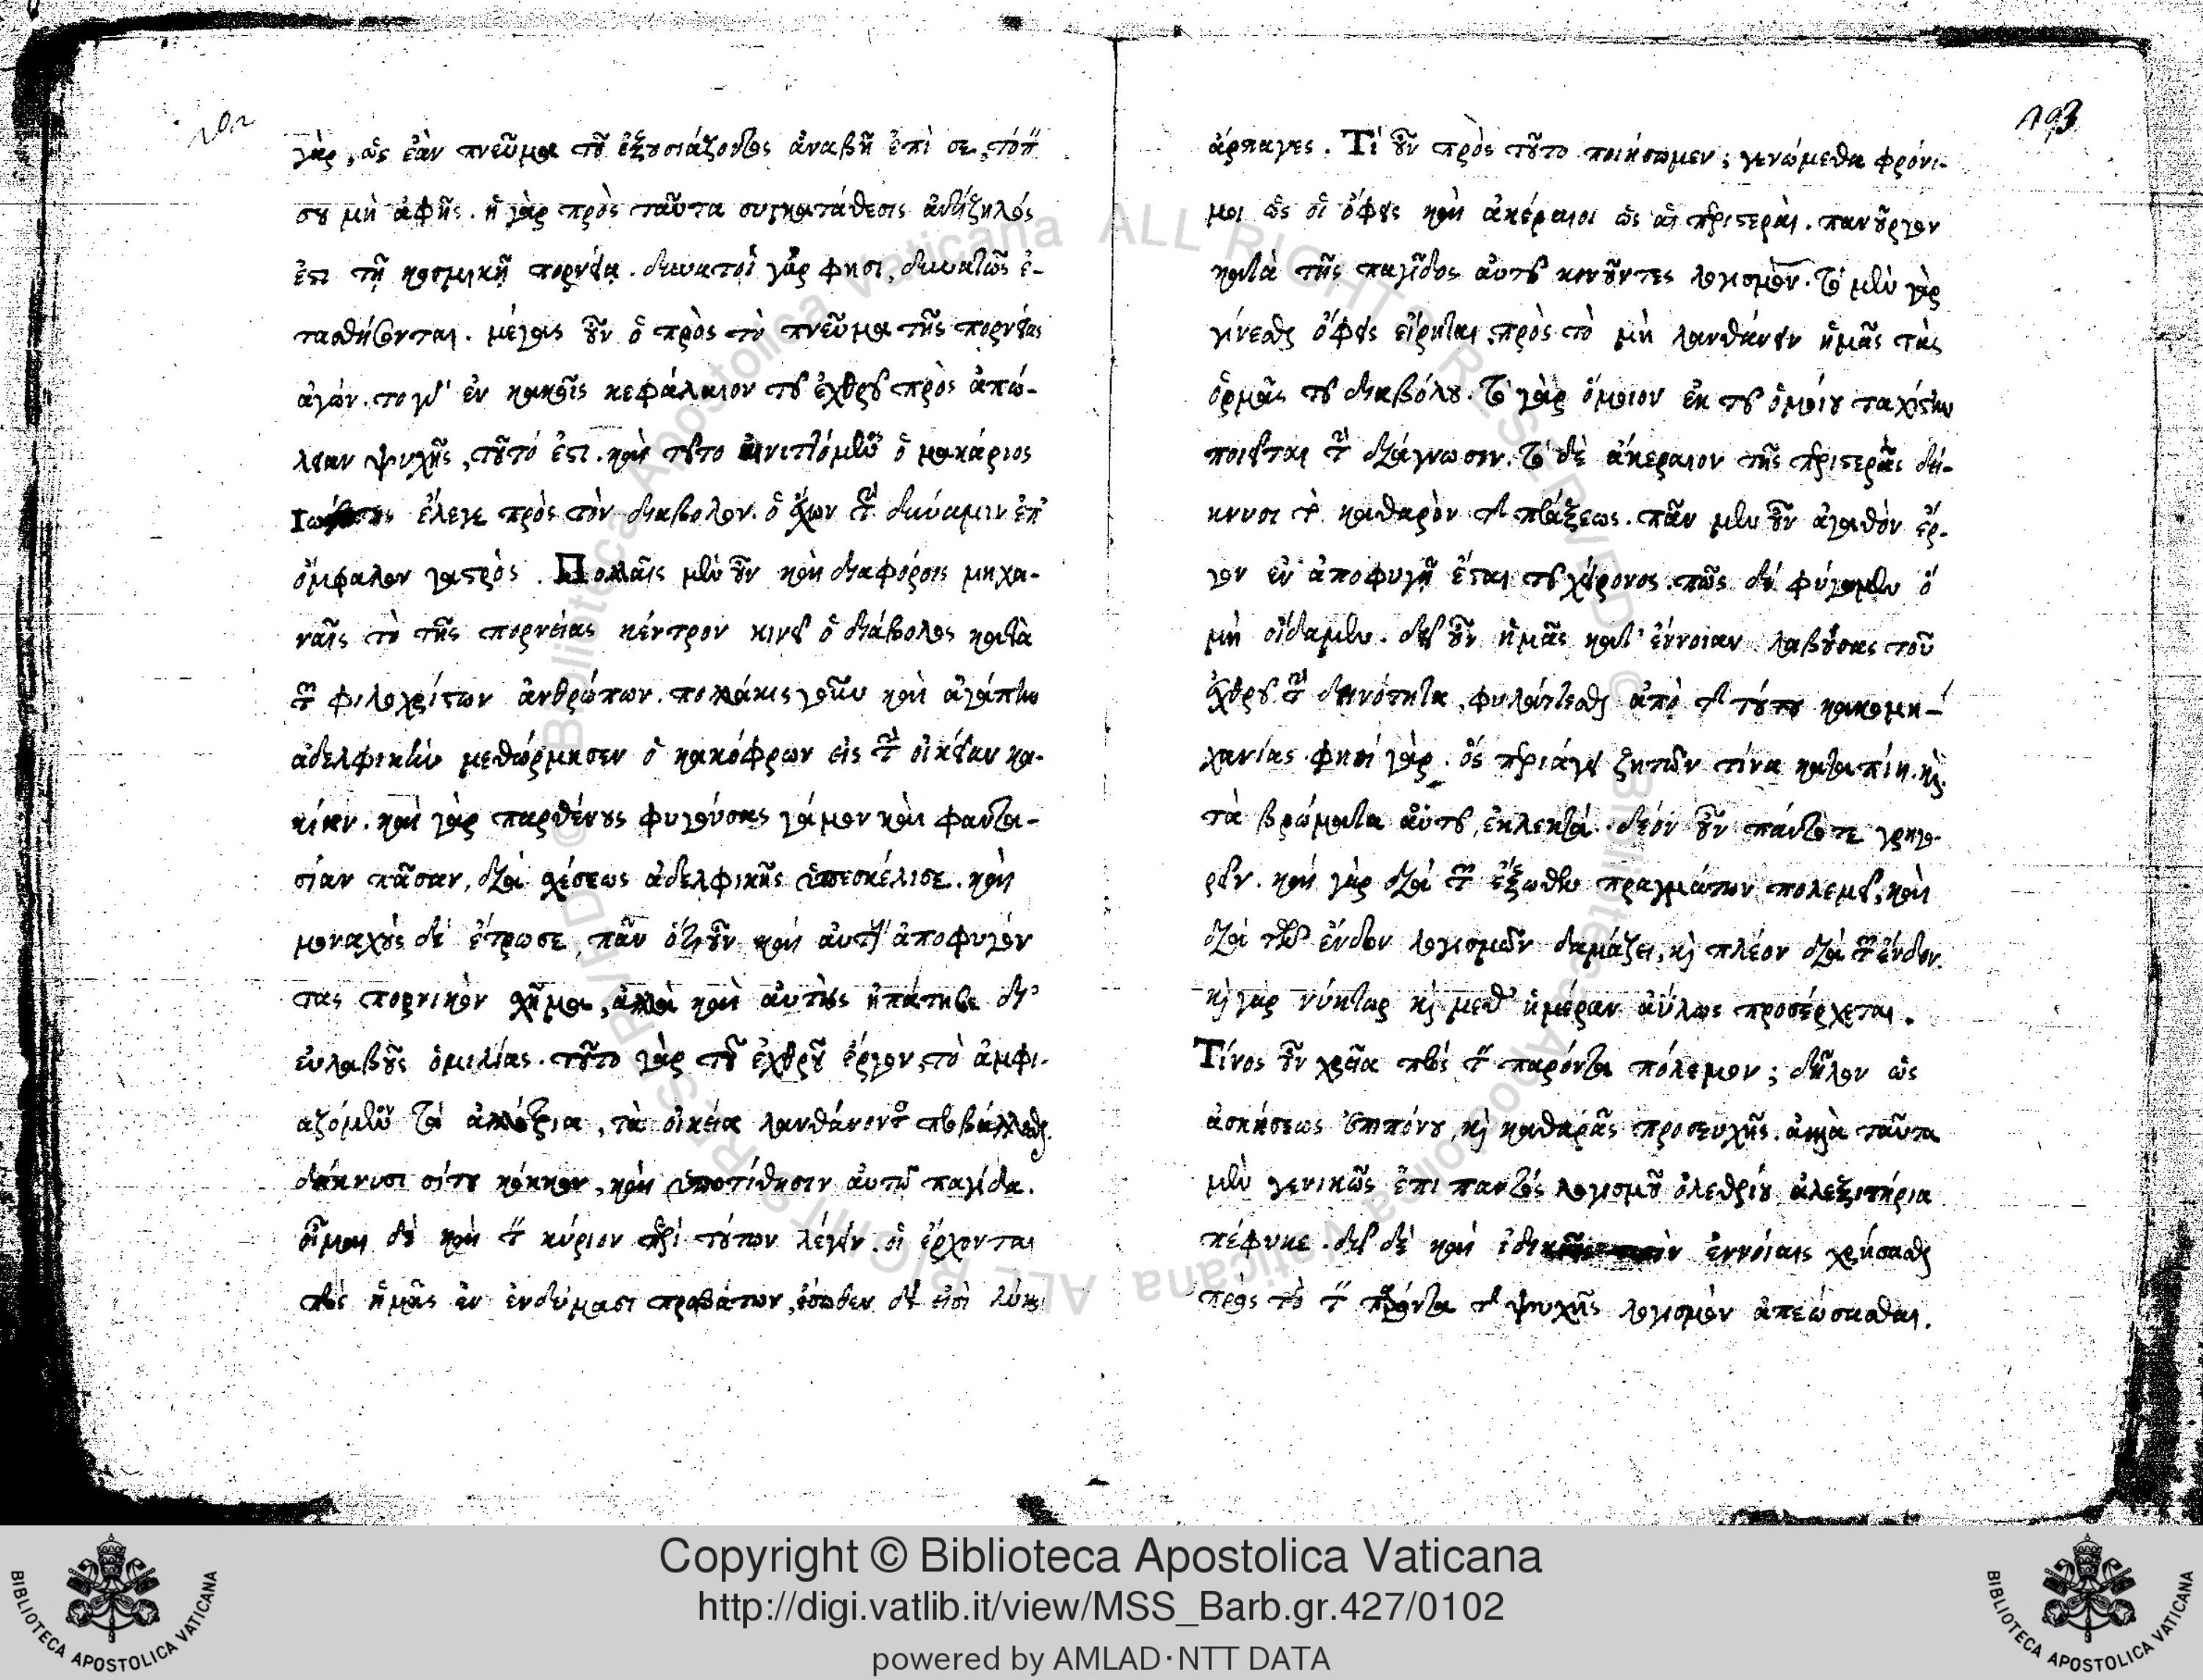 192
γὰρ, ὡς ἐὰν πνεῦμα τοῦ ἐξουσιάζοντος ἀναβῇ ἐπί σε, τόπον
σου μὴ ἀφῇς. ἡ γὰρ πρὸς ταῦτα συγκατάθεσις ἀντίζηλός
ἐστι τῇ κοσμικῇ πορνείᾳ. δυνατοὶ γάρ φησι, δυνατῶς ἐ-
τασθήσονται. μέγας οὖν ὁ πρὸς τὸ πνεῦμα τῆς πορνείας
ἀγών. τὸ γὰρ ἐν κακοῖς κεφάλαιον τοῦ ἐχθροῦ πρὸς ἀπώ-
λειαν ψυχῆς, τοῦτό ἐστι. καὶ τοῦτο αἰνιττόμενος ὁ μακάριος
ἔλεγε πρὸς τὸν διάβολον. ὁ ἔχων τὴν δύναμιν ἐπ'
ὄμφαλον γαστρός. Πολλαῖς μὲν οὖν καὶ διαφόροις μηχα-
ναῖς τὸ τῆς πορνείας κέντρον κινεῖ ὁ διάβολος κατὰ
τῶν φιλοχρίστων ἀνθρώπων. πολλάκις γοῦν καὶ ἀγάπην
ἀδελφικὴν μεθώρμησεν ὁ κακόφρων εἰς τὴν οἰκείαν κα-
κίαν. καὶ γὰρ παρθένους φυγούσας γάμον καὶ φαντα-
σίαν πᾶσαν, διὰ σχέσεως ἀδελφικῆς ὑπεσκέλισε. καὶ
μοναχοὺς δὲ ἔτρωσε, πᾶν ὁτιοῦν καὶ αὐτοὺς ἀποφυγόν
τας πορνικὸν σχῆμα, ἀλλὰ καὶ αὐτοὺς ἠπάτησε δι'
εὐλαβοῦς ὁμιλίας. τοῦτο γὰρ τοῦ ἐχθροῦ ἔργον, τὸ ἀμφι-
αζόμενον τὰ ἀλλότρια, τὰ οἰκεῖα λανθάνοντως προβάλλεσθαι.
δείκνυσι σίτου κόκκον, καὶ ὑποτίθησιν αὐτῷ παγίδα.
οἶμαι δὲ καὶ τὸν κύριον περὶ τούτων λέγειν. οἳ ἔρχονται
πρὸς ἡμᾶς ἐν ἐνδύμασι προβάτων, ἔσωθεν δέ εἰσι λύκοι
193
ἅρπαγες. Τί οὖν πρὸς τοῦτο ποιήσωμεν; γενώμεθα φρόνι-
μοι ὡς οἱ ὄφεις καὶ ἀκέραιοι ὡς αἱ περιστεραί. πανοῦργον
κατὰ τῆς παγίδος αὐτοῦ κινοῦντες λογισμόν. τὸ μὲν γὰρ
γίνεσθαι ὄφεις εἴρηται, πρὸς τὸ μὴ λανθάνειν ἡμᾶς τὰς
ὁρμὰς τοῦ διαβόλου. τὸ γὰρ ὅμοιον ἐκ τοῦ ὁμοίου ταχίστην
ποιεῖται τὴν διάγνωσιν. τὸ δὲ ἀκέραιον τῆς περιστερᾶς δεί-
κνυσι τὸ καθαρὸν τῆς πράξεως. πᾶν μὲν οὖν ἀγαθὸν ἔρ-
γον ἐν ἀποφυγῇ ἔσται τοῦ χείρονος. πῶς δὲ φύγωμεν ὃ
μὴ οἴδαμεν. δεῖ οὖν ἡμᾶς κατ' ἔννοιαν λαβούσας τοῦ
ἐχθροῦ τὴν δεινότητα, φυλάττεσθαι ἀπὸ τῆς τούτου κακομη-
χανίας. φησὶ γάρ. ὃς περιάγει ζητῶν τίνα καταπίῃ. καὶ
τὰ βρώματα αὐτοῦ, ἐκλεκτά. δέον οὖν πάντοτε γρηγο-
ρεῖν. καὶ γὰρ διὰ τῶν ἔξωθεν πραγμάτων πολεμεῖ, καὶ
διὰ τῶν ἔνδον λογισμῶν δαμάζει, καὶ πλέον διὰ τῶν ἔνδον.
καὶ γὰρ νύκτωρ καὶ μεθ' ἡμέραν ἀΰλως προσέρχεται.
Τίνος οὖν χρεία πρὸς τὸν παρόντα πόλεμον; δῆλον ὡς
ἀσκήσεως ἐπιπόνου, καὶ καθαρᾶς προσευχῆς. ἀλλὰ ταῦτα
μὲν γενικῶς ἐπὶ παντὸς λογισμοῦ ὀλεθρίου ἀλεξιτήρια
πέφυκε. δεῖ δὲ καὶ ἐννοίαις χρήσασθαι
πρὸς τὸ τὸν παρόντα τῆς ψυχῆς λογισμὸν ἀπεώσασθαι.
Copyright © Biblioteca Apostolica Vaticana
http://digi.vatlib.it/view/MSS_Barb.gr.427/0102
powered by AMLAD·NTT DATA
BIBLIOTECA APOSTOLICA VATICANA
BIBLIOTECA APOSTOLICA VATICANA